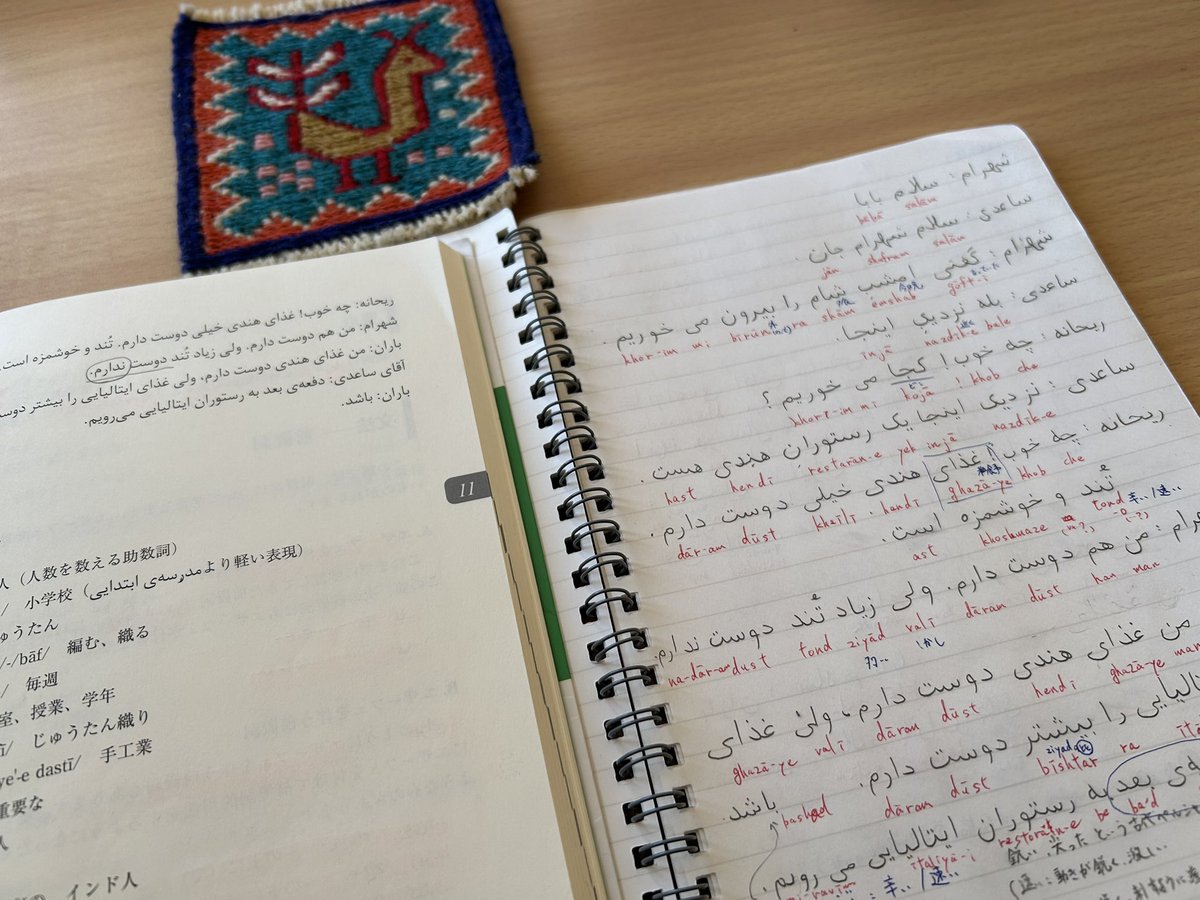 ریحانه: چه خوب! غذای هندی خیلی دوست دارم. تُند و خوشمزه است.
شهرام: من هم دوست دارم. ولی زیاد تُند دوست ندارم.
باران: من غذای هندی دوست دارم، ولی غذای ایتالیایی را بیشتر دوست
آقای ساعدی: دفعه‌ی بعد به رستوران ایتالیایی می‌رویم.
باران: باشد.
11
人（人数を数える助数詞）
/ 小学校（مدرسه‌ی ابتداییより軽い表現）
ゅうたん
/-/bāf/ 編む、織る
/ 毎週
室、授業、学年
/ じゅうたん織り
ye'-e dastī/ 手工業
重要な
人
インド人
شهرام: سلام بابا
bābā salām
ساعدی: سلام شهرام جان.
jān shahram salām
شهرام: گفتی امشب شام را بیرون می خوریم.
khor-īm mi bīrūn ra shām emshab goft-ī
ساعدی: بله نزدیکِ اینجا.
īnjā nazdīk-e bale
ریحانه: چه خوب! کجا می خوریم؟
khor-īm mi kojā ! khob che
ساعدی: نزدیک اینجا یک رستوران هندی هست.
hast hendī restarān-e yek īnjā nazdīk-e
ریحانه: چه خوب! غذای هندی خیلی دوست دارم.
dār-am dūst kheīlī hendī ghazā-ye khob che
تُند و خوشمزه است.
ast khoshmaze tond 辛い/速い
رام: من هم دوست دارم. ولی زیاد تُند دوست ندارم.
na-dār-am dust tond ziyād valī dāram dūst ham man
多い しかし
من غذای هندی دوست دارم، ولی غذای
ghazā-ye valī dāram dūst hendī ghazā-ye man
تالیایی را بیشتر دوست دارم. باشد.
bashad dāram dūst bīshtar ra īta
ه‌ی بعد به رستوران ایتالیایی می رویم.
italiyā-i restorān-e be ba'd